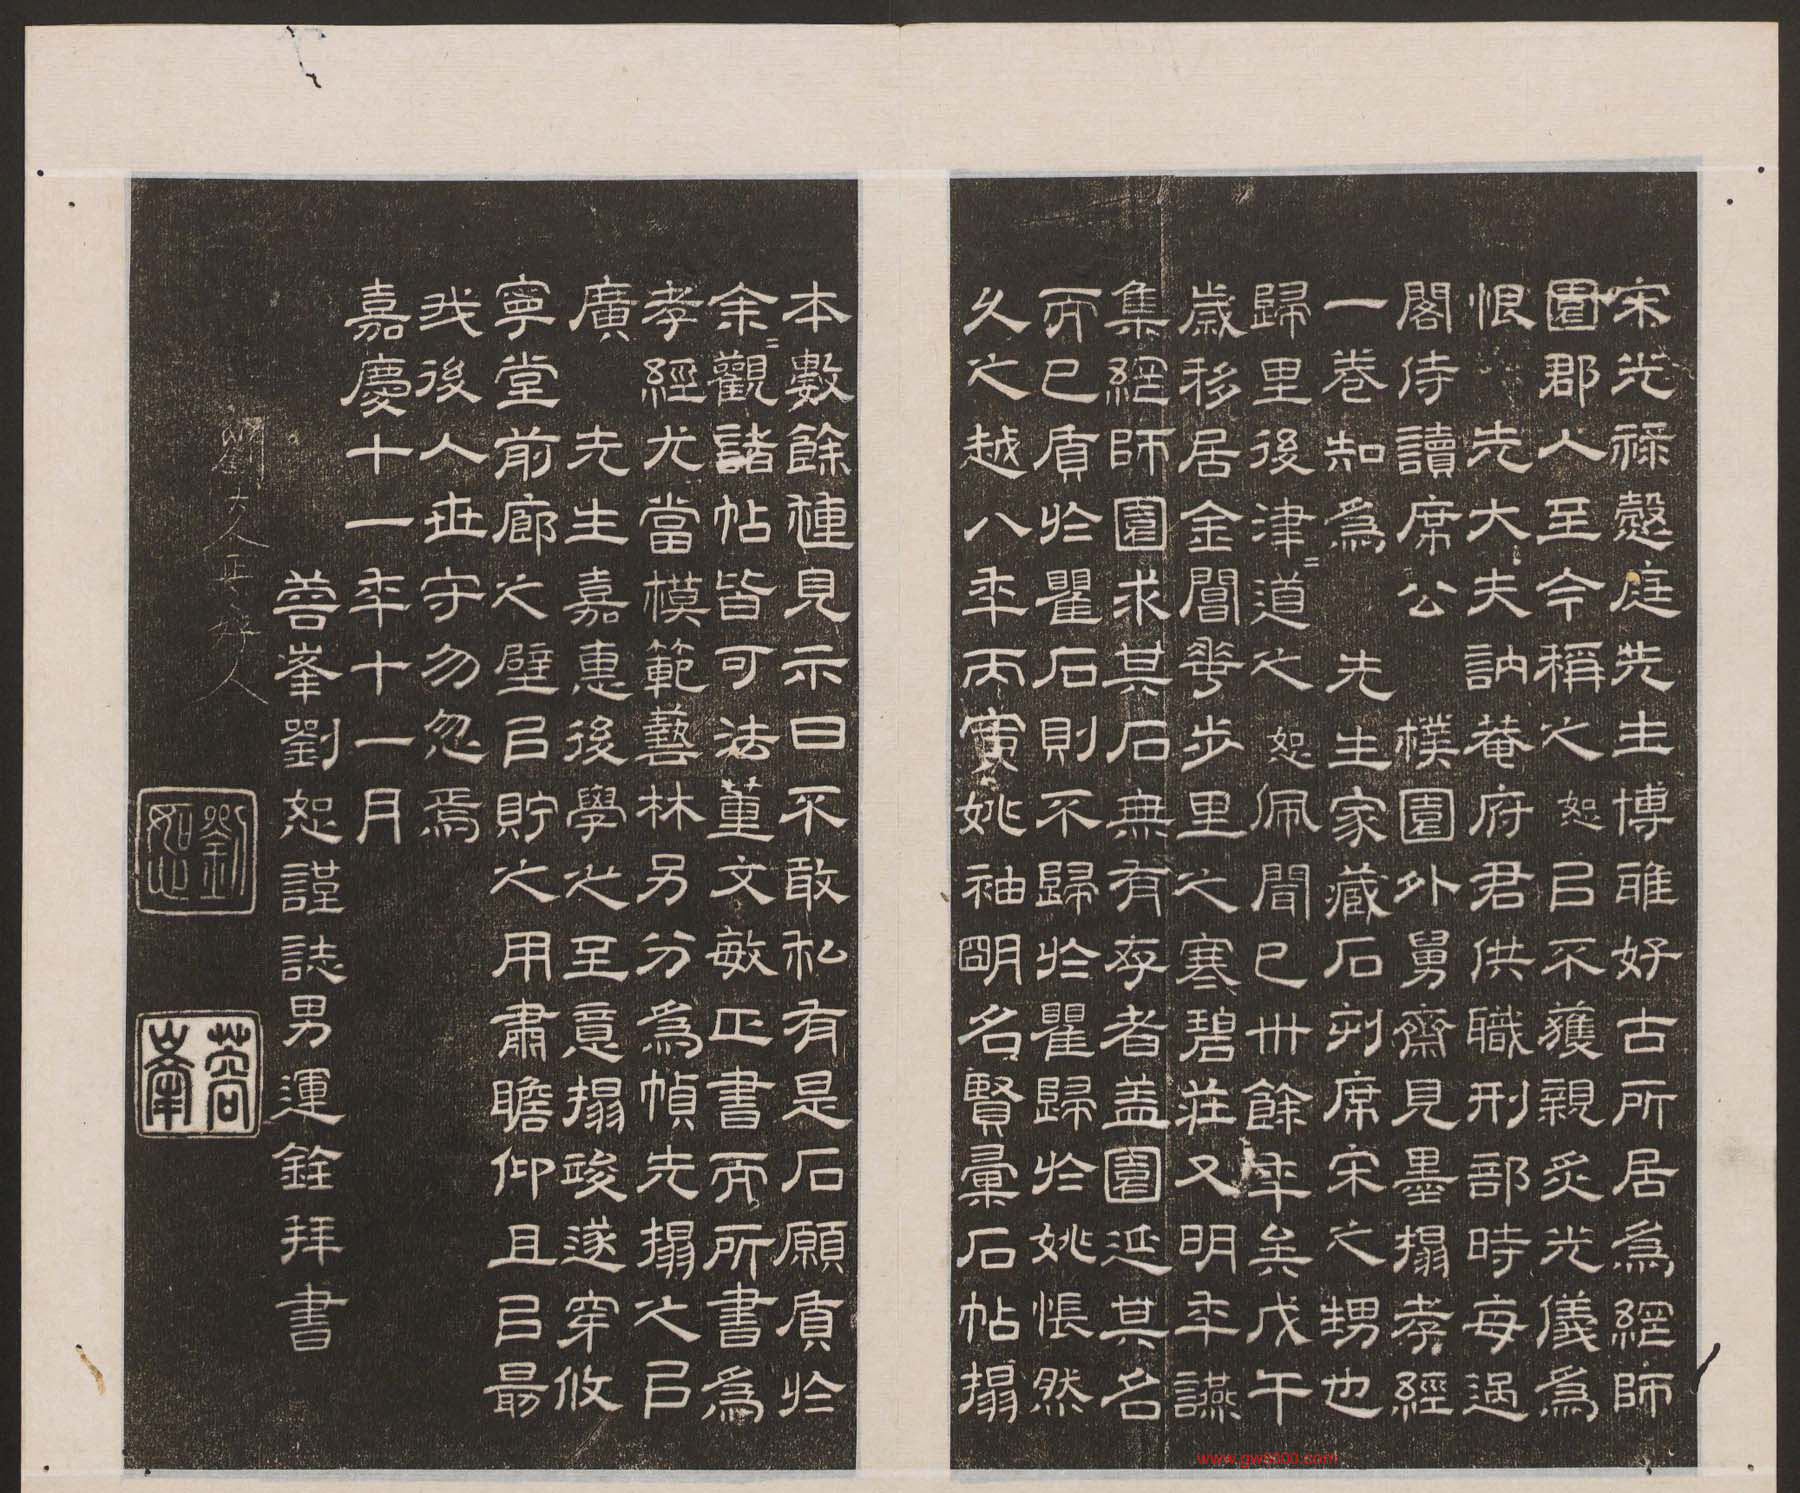 宋光祿慤庭先生博雅好古所居爲網師
園郡人至今稱之恕㠯不獲親炙光儀爲
恨先大夫訥菴府君供職刑部時每過
閣侍讀席公樸園外舅齋見墨搨孝經
一卷知爲先生家藏石刻席宋之甥也
歸里後津=道之恕佩間已卅餘年矣戊午
歲移居金閶花步里之寒碧莊又明年讌
集網師園求其石無有存者蓋園延其名
而已質於瞿石則不歸於瞿歸於姚悵然
久之越八年丙寅姚袖朙名賢彙石帖搨
本數餘種見示曰不敢私有是石願質於
余=觀諸帖皆可法董文敏正書而所書爲
孝經尤當模範藝林另分爲幀先搨之㠯
廣先生嘉惠後學之至意搨竣遂穿攸
寧堂前廊之壁㠯貯之用肅瞻仰且㠯最
我後人世守勿忽焉
嘉慶十一年十一月
蓉峯劉恕謹誌男運銓拜書
劉大人正好人
劉恕
蓉峯
www.gw8000.com